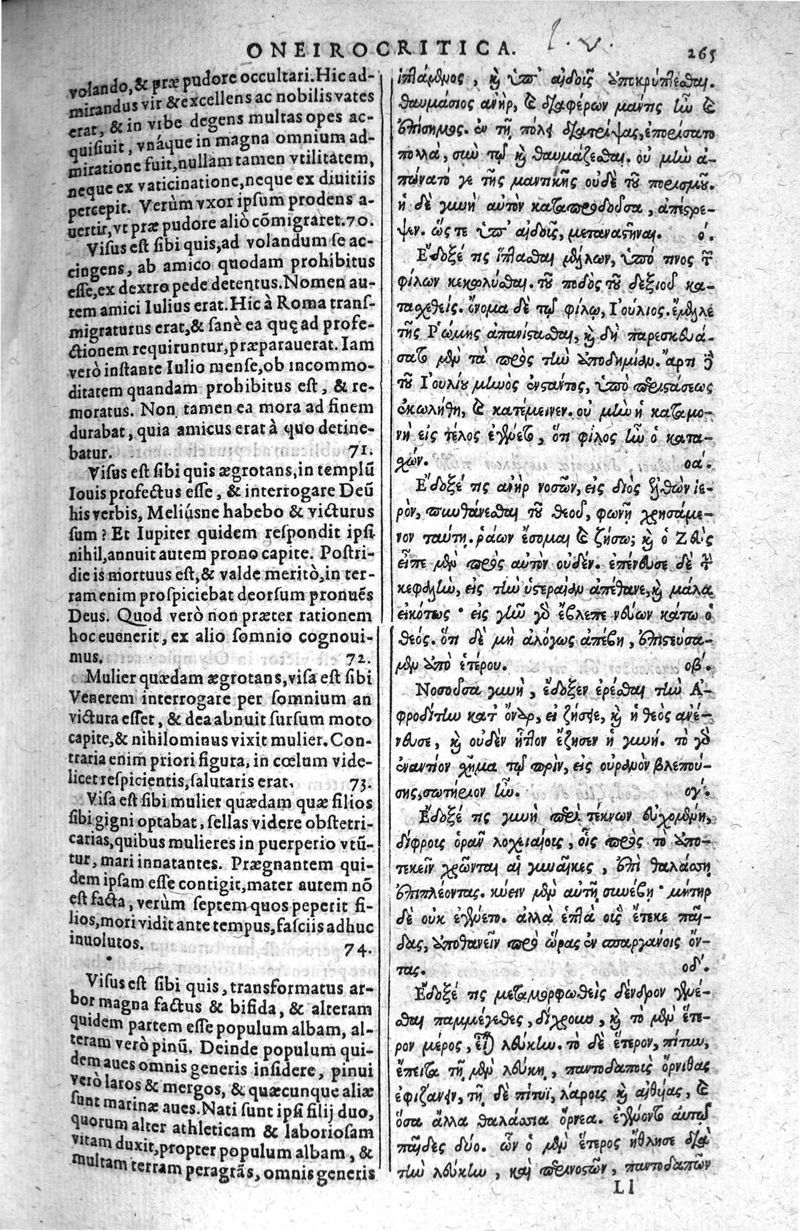 ONEIROCRITICA.
265
volando, & præ pudore occultari. Hic ad-
mirandus vir & excellens ac nobilis vates
erat, & in vrbe degens multas opes ac-
quisiuit, vnáque in magna omnium ad-
miratione fuit, nullam tamen vtilitatem,
neque ex vaticinatione, neque ex diuitiis
percepit. Verùm vxor ipsum prodens a-
uertit, vt præ pudore aliò cõmigraret. 70.
Visus est sibi quis, ad volandum se ac-
cingens, ab amico quodam prohibitus
esse, ex dextro pede detentus. Nomen au-
tem amici Iulius erat. Hic à Roma trans-
migraturus erat, & sanè ea quę ad profe-
ctionem requiruntur, præparauerat. Iam
verò instante Iulio mense, ob incommo-
ditatem quandam prohibitus est, & re-
moratus. Non tamen ea mora ad finem
durabat, quia amicus erat à quo detine-
batur. 71.
Visus est sibi quis ægrotans, in templũ
Iouis profectus esse, & interrogare Deũ
his verbis, Meliúsne habebo & victurus
sum? Et Iupiter quidem respondit ipsi
nihil, annuit autem prono capite. Postri-
die is mortuus est, & valde meritò, in ter-
ram enim prospiciebat deorsum pronuẽs
Deus. Quod verò non præter rationem
hoc euenerit, ex alio somnio cognoui-
mus. 72.
Mulier quædam ægrotans, visa est sibi
Venerem interrogare per somnium an
victura esset, & dea abnuit sursum moto
capite, & nihilominus vixit mulier. Con-
traria enim priori figura, in cœlum vide-
licet respicientis, salutaris erat. 73.
Visa est sibi mulier quædam quæ filios
sibi gigni optabat, sellas videre obstetri-
carias, quibus mulieres in puerperio vtũ-
tur, mari innatantes. Prægnantem qui-
dem ipsam esse contigit, mater autem nõ
est facta, verùm septem quos peperit fi-
lios, mori vidit ante tempus, fasciis adhuc
inuolutos. 74.
Visus est sibi quis, transformatus ar-
bor magna factus & bifida, & alteram
quidem partem esse populum albam, al-
teram verò pinũ. Deinde populum qui-
dem aues omnis generis insidere, pinui
verò laros & mergos, & quæcunque aliæ
sunt marinæ aues. Nati sunt ipsi filij duo,
quorum alter athleticam & laboriosam
vitam duxit, propter populum albam, &
multam terram peragrãs, omnis generis
ἱπλάμενος, καὶ ὑπ' αἰδοῖς ὑποκρύπτεσθαι.
θαυμάσιος ἀνὴρ, καὶ διαφέρων μάντις ἦν καὶ
ἐπίσημος. ἐν τῇ πόλει διατρίψας, ἐπορίσατο
πολλὰ, σὺν τῷ καὶ θαυμάζεσθαι. οὐ μὴν ἀ-
πώνατό γε τῆς μαντικῆς οὐδὲ τοῦ πορισμοῦ.
ἡ δὲ γυνὴ αὐτὸν καταπροδοῦσα, ἀπέτρε-
ψεν. ὥς τε ὑπ' αἰδοῖς, μεταναστῆναι. ο΄.
Ἔδοξέ τις ἵπλασθαι μέλλων, ὑπό τινος τῶν
φίλων κεκωλύσθαι. τοῦ ποδὸς τοῦ δεξιοῦ κα-
ταχθείς. ὄνομα δὲ τῷ φίλῳ, Ἰούλιος. ἔμελλε
τῆς Ῥώμης ἀπανίστασθαι, καὶ δὴ παρεσκευά-
σατο μὲν τὰ πρὸς τὴν ἀποδημίαν. ἄρτι δὲ
τοῦ Ἰουλίου μηνὸς ἐνστάντος, ὑπὸ περιστάσεως
ἐκωλύθη, καὶ κατέμεινεν. οὐ μὴν ἡ καταμο-
νὴ εἰς τέλος ἐγένετο, ὅτι φίλος ἦν ὁ κατα-
χών. οα΄.
Ἔδοξέ τις ἀνὴρ νοσῶν, εἰς διὸς ἐλθὼν ἱε-
ρὸν, πυνθάνεσθαι τοῦ θεοῦ, φωνῇ χρησάμε-
νον ταύτῃ. ῥάων ἔσομαι καὶ ζήσω; καὶ ὁ Ζεὺς
εἶπε μὲν πρὸς αὐτὸν οὐδέν. ἐπένευσε δὲ τὴν
κεφαλὴν, εἰς τὴν ὑστεραίαν ἀπέθανε, καὶ μάλα
εἰκότως· εἰς γῆν γὰρ ἔβλεπε νεύων κάτω ὁ
θεός. ὅτι δὲ μὴ ἀλόγως ἀπέβη, ἐπιστεύσα-
μεν ὑπὸ ἑτέρου. οβ΄.
Νοσοῦσα γυνὴ, ἔδοξεν ἐρέσθαι τὴν Ἀ-
φροδίτην κατ' ὄναρ, εἰ ζήσεται, καὶ ἡ θεὸς ἀνέ-
νευσε, καὶ οὐδὲν ἧττον ἔζησεν ἡ γυνή. τὸ γὰρ
ἐναντίον σχῆμα τῷ πρὶν, εἰς οὐρανὸν βλεπού-
σης, σωτήριον ἦν. ογ΄.
Ἔδοξέ τις γυνὴ περὶ τέκνων εὐχομένη,
δίφροις ὁρᾶν λοχιαίοις, οἷς πρὸς τὸ ἀπο-
τεκεῖν χρῶνται αἱ γυναῖκες, ἐπὶ θαλάσσῃ
ἐπιπλέοντας. κύειν μὲν αὐτῇ συνέβη· μήτηρ
δὲ οὐκ ἐγένετο. ἀλλὰ ἑπτὰ οὓς ἔτεκε παῖ-
δας, ἀποθανεῖν πρὸ ὥρας ἐν σπαργάνοις ὄν-
τας. οδ΄.
Ἔδοξέ τις μεταμορφωθεὶς δένδρον γενέ-
σθαι παμμέγεθες, δίχροιον, καὶ τὸ μὲν ἕτε-
ρον μέρος, εἶναι λεύκην. τὸ δὲ ἕτερον, πίτυν,
ἔπειτα τῇ μὲν λεύκῃ, παντοδαποῖς ὄρνιθας
ἐφιζάνειν, τῇ δὲ πίτυϊ, λάροις καὶ αἰθυίας, καὶ
ὅσα ἄλλα θαλάσσια ὄρνεα. ἐγένοντο αὐτῷ
παῖδες δύο. ὧν ὁ μὲν ἕτερος ἤθλησε διὰ
τὴν λεύκην, καὶ περινοστῶν, παντοδαπῶν
Ll